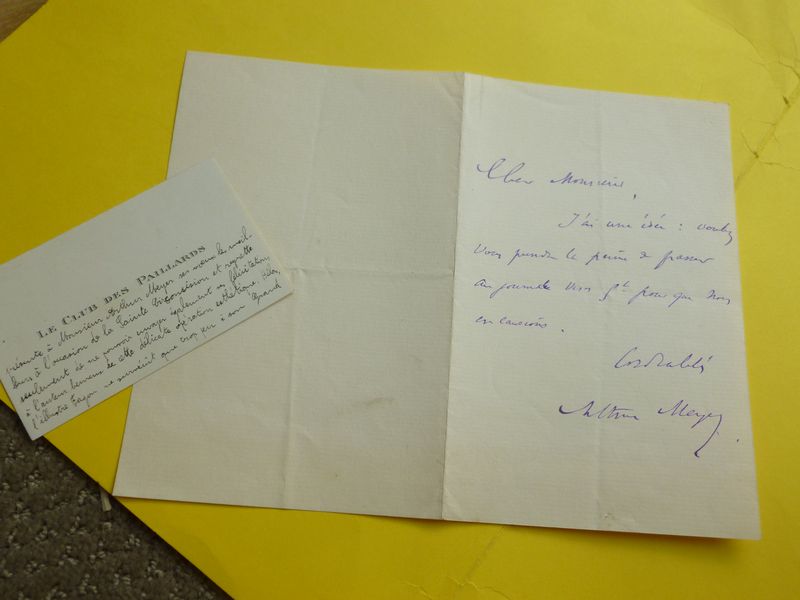 LE CLUB DES PAILLARDS
présente à Monsieur Arthur Meyer ses vœux les meil-
leurs à l'occasion de la Sainte Circoncision et regrette
seulement de ne pouvoir envoyer également ses félicitations
à l'auteur heureux de cette délicate opération esthétique. Hélas,
l'illustre Fagon ne survécut que trop peu à son Grand
Cher Monsieur,
J'ai une idée : voulez
vous prendre la peine de passer
au journal vers 5h pour que nous
en causions.
Cordialités
Arthur Meyer